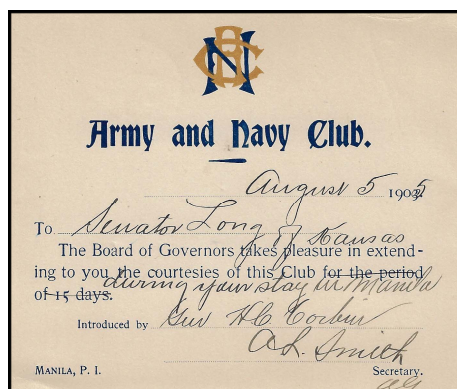 Army and Navy Club.
August 5 1905.
To Senator Long of Kansas
The Board of Governors takes pleasure in extend-
ing to you the courtesies of this Club for the period
of 15 days. during your stay in Manila
Introduced by Gen H.C. Corbin
A L. Smith
MANILA, P. I. Secretary.